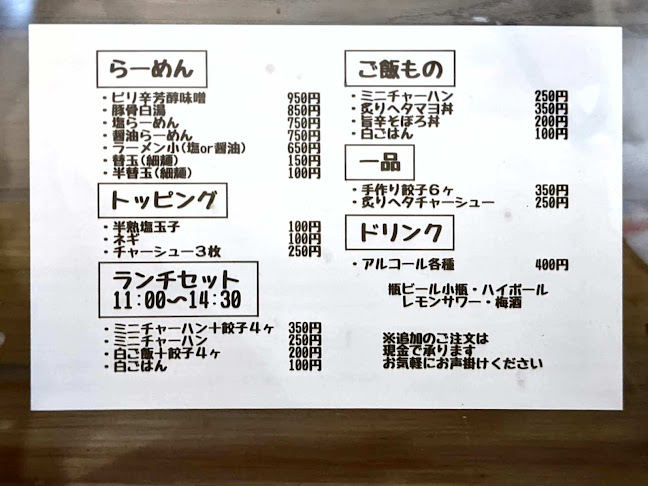 らーめん
・ピリ辛芳醇味噌 950円
・豚骨白湯 850円
・塩らーめん 750円
・醤油らーめん 750円
・ラーメン小(塩or醤油) 650円
・替玉(細麺) 150円
・半替玉(細麺) 100円
トッピング
・半熟塩玉子 100円
・ネギ 100円
・チャーシュー３枚 250円
ランチセット
11:00〜14:30
・ミニチャーハン＋餃子４ヶ 350円
・ミニチャーハン 250円
・白ご飯＋餃子４ヶ 200円
・白ごはん 100円
ご飯もの
・ミニチャーハン 250円
・炙りヘタマヨ丼 350円
・旨辛そぼろ丼 200円
・白ごはん 100円
一品
・手作り餃子６ヶ 350円
・炙りヘタチャーシュー 250円
ドリンク
・アルコール各種 400円
瓶ビール小瓶・ハイボール
レモンサワー・梅酒
※追加のご注文は
現金で承ります
お気軽にお声掛けください